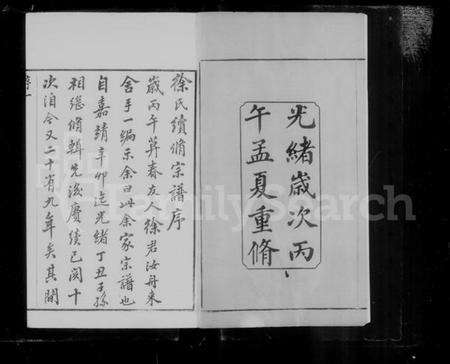 光緒歲次丙
午孟夏重脩
徐氏續脩宗譜序
歲丙午算春友人徐君汝舟來
舍手一編示余曰此余家宗譜也
自嘉靖辛卯迄光緒丁丑子孫
相繼脩輯先後賡續已閱十
次洎今又二十有九年矣其間
FamilySearch